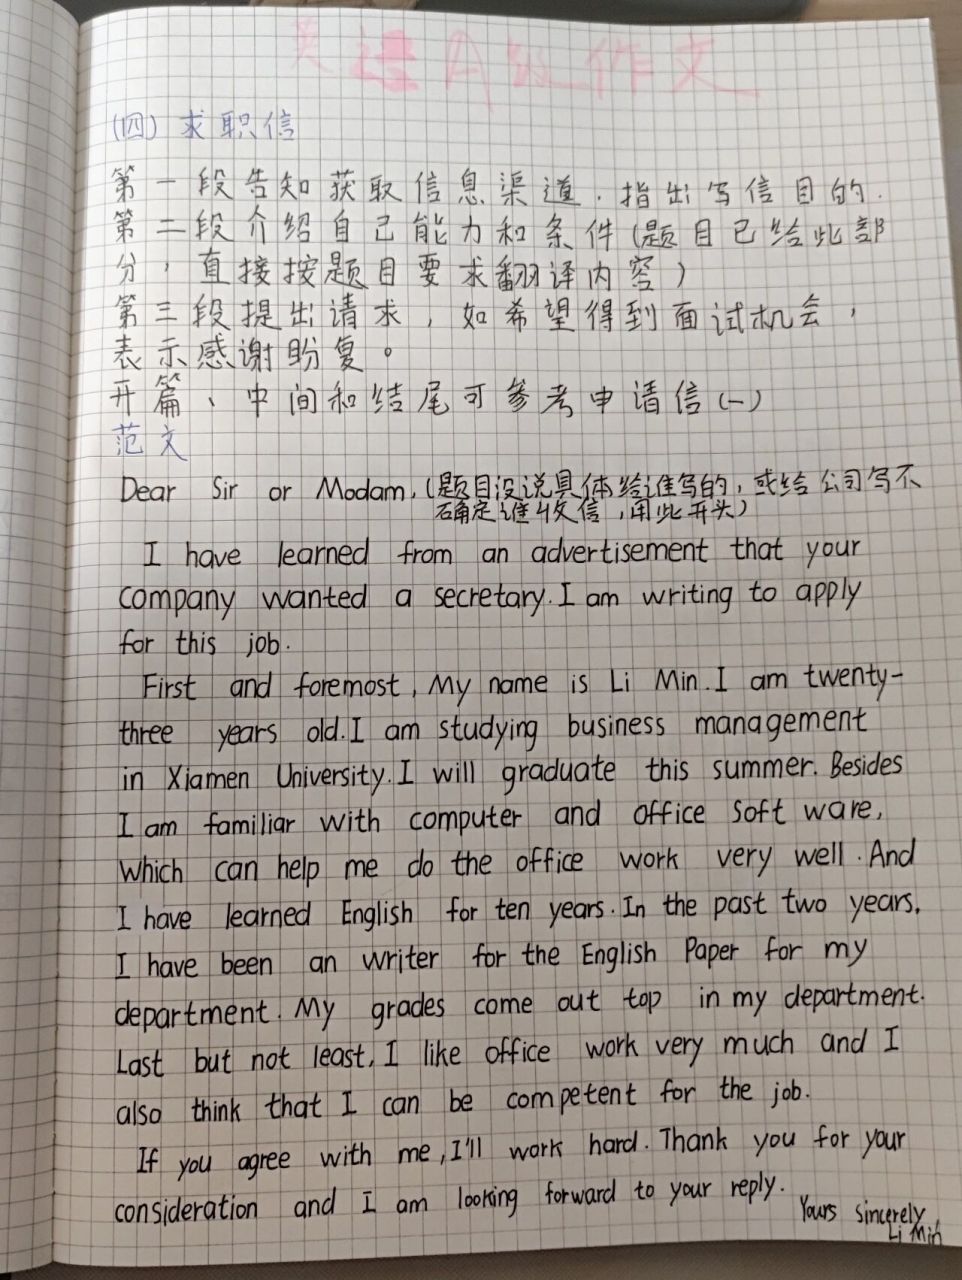 英语A级作文
(四) 求职信
第一段告知获取信息渠道.指出写信目的.
第二段介绍自己能力和条件(题目已给此部
分，直接按题目要求翻译内容)
第三段提出请求，如希望得到面试机会，
表示感谢盼复。
开篇、中间和结尾可参考申请信(一)
范文
Dear Sir or Modam,(题目没说具体给谁写的，或给公司写不
确定谁收信，用此开头)
I have learned from an advertisement that your
company wanted a secretary. I am writing to apply
for this job.
First and foremost, My name is Li Min. I am twenty-
three years old. I am studying business management
in Xiamen University. I will graduate this summer. Besides
I am familiar with computer and office soft ware,
which can help me do the office work very well. And
I have learned English for ten years. In the past two years,
I have been an writer for the English Paper for my
department. My grades come out top in my department.
Last but not least, I like office work very much and I
also think that I can be competent for the job.
If you agree with me, I'll work hard. Thank you for your
consideration and I am looking forward to your reply.
Yours sincerely,
Li Min